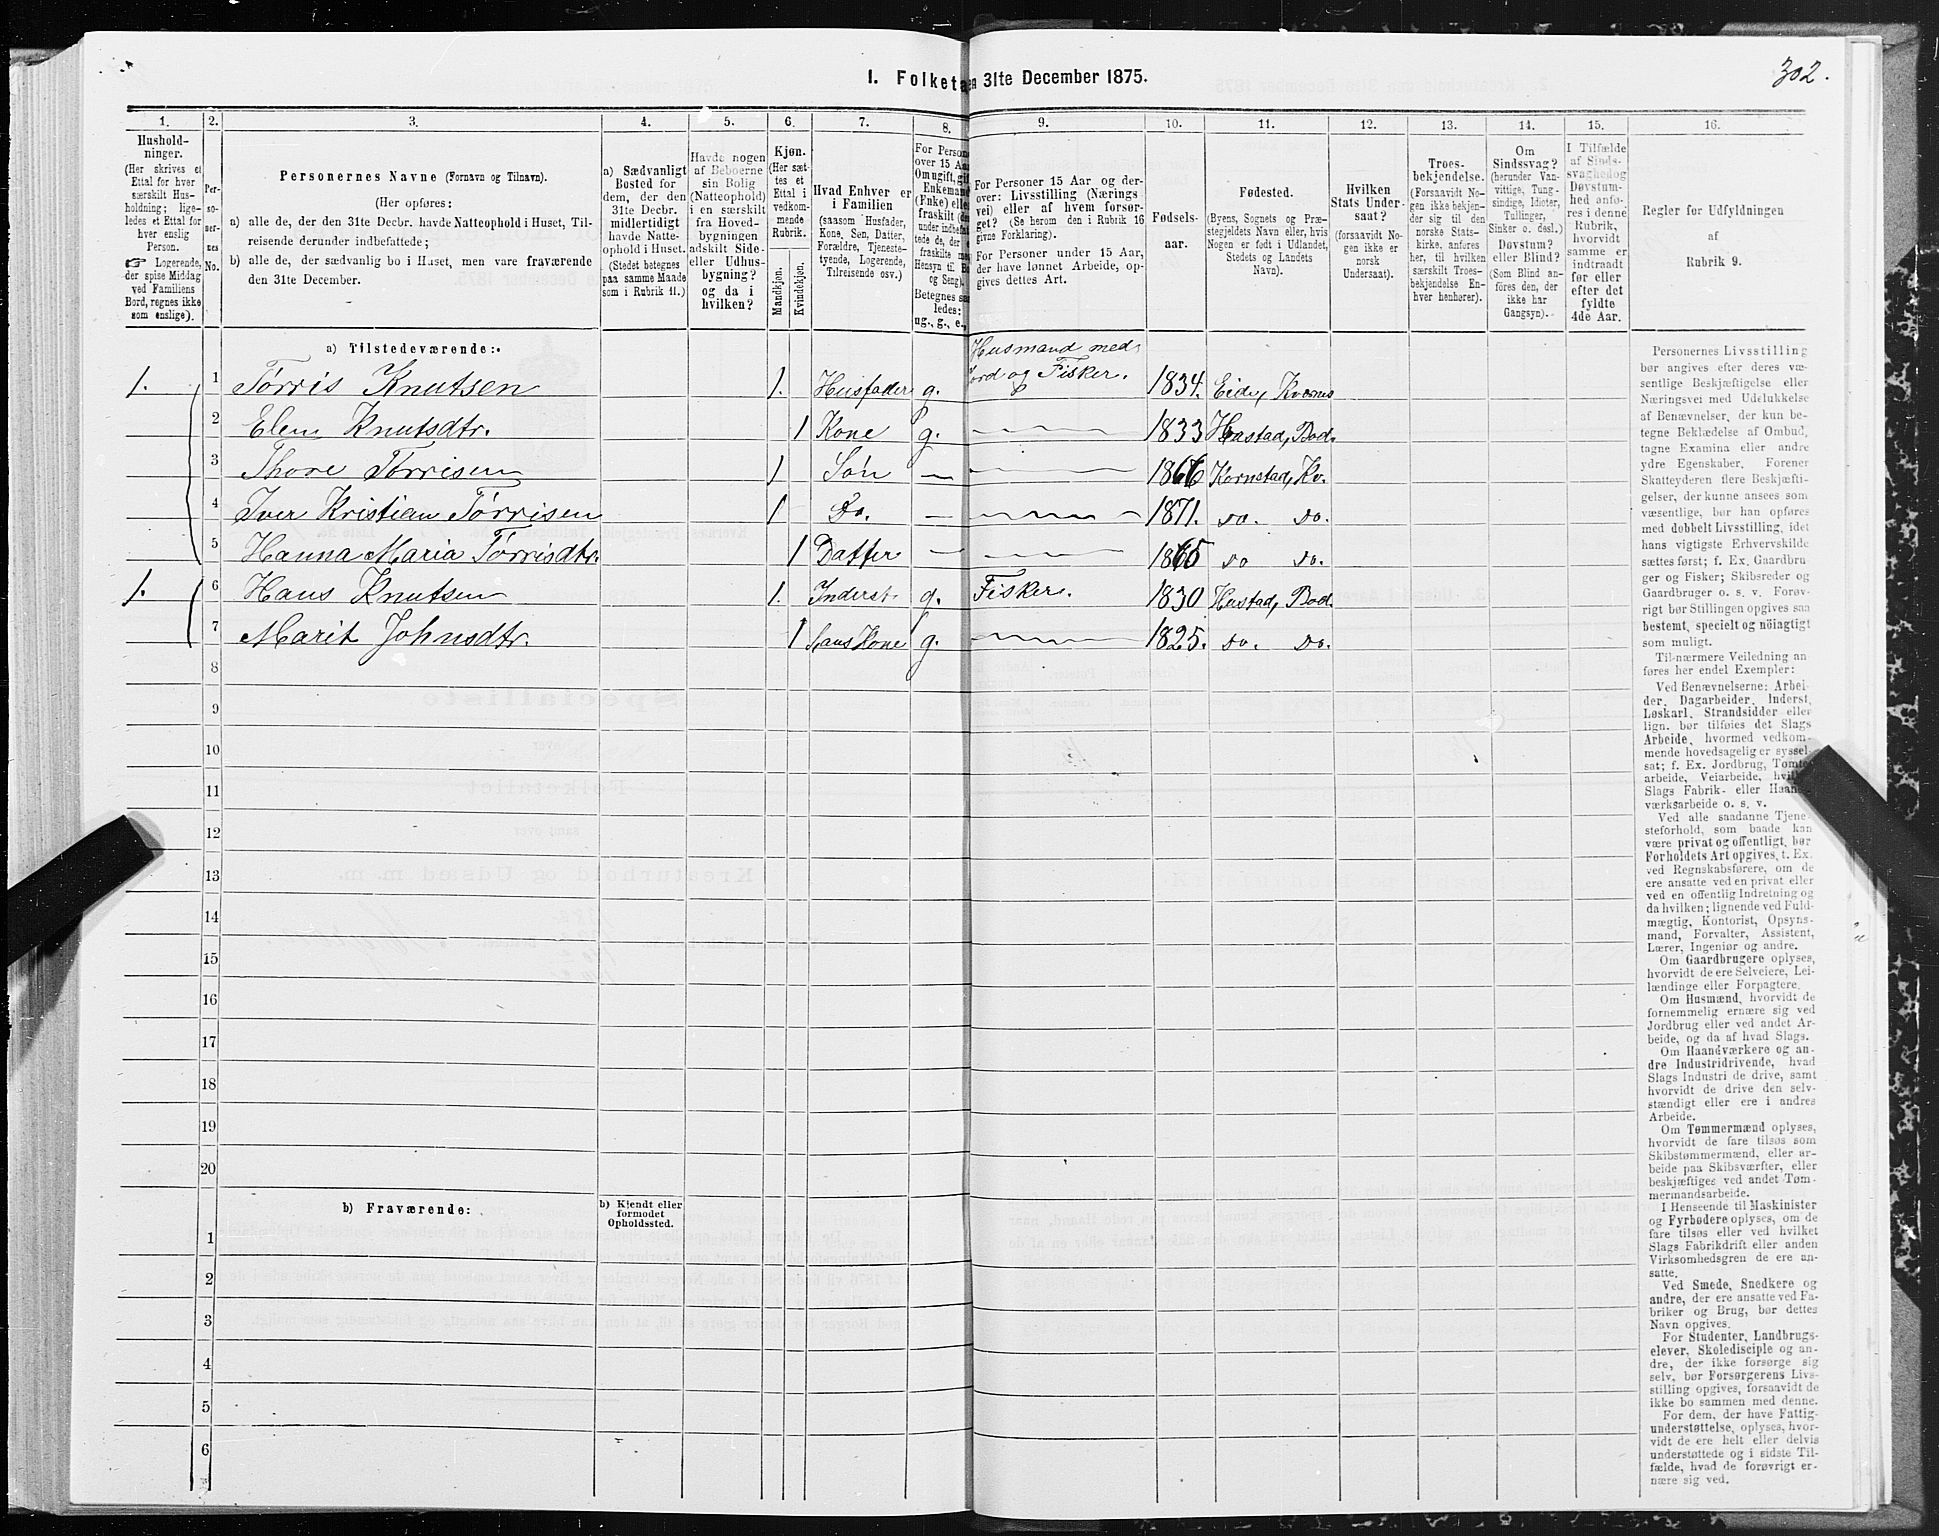 302.
I. Folketa en 31te December 1875.
1. 2. 3. 4. 5. 6. 7. 8. 9. 10. 11. 12. 13. 14. 15. 16.
Hushold-
ninger.
(Her skrives et
Ettal for hver
særskilt Hus-
holdning; lige-
ledes et Ettal for
hver enslig
Person.
☞ Logerende,
der spise Middag
ved Familiens
Bord, regnes ikke
som enslige).
Per-
so-
ner-
nes
No.
Personernes Navne (Fornavn og Tilnavn).
(Her opføres:
a) alle de, der den 31te Decbr. havde Natteophold i Huset, Til-
reisende derunder indbefattede;
b) alle de, der sædvanlig bo i Huset, men vare fraværende
den 31te December.
a) Sædvanligt
Bosted for
dem, der den
31te Decbr.
midlertidigt
havde Natte-
ophold i Huset.
(Stedet betegnes
paa samme Maade
som i Rubrik 11.)
Havde nogen
af Beboerne
sin Bolig
(Natteophold)
i en særskilt
fra Hoved-
bygningen
adskilt Side-
eller Udhus-
bygning?
og da i
hvilken?
Kjøn.
(Her sæt-
tes et
Ettal i
vedkom-
mende
Rubrik.
Mandkjøn.
Kvindekjøn.
Hvad Enhver er
i Familien
(saasom Husfader,
Kone, Søn, Datter,
Forældre, Tjeneste-
tyende, Logerende,
Tilreisende osv.)
For Person
over 15 Aa
Om ugift, gif
Enkemand
(Enke) elle
fraskilt (de
under indbefat
tede de, der e
fraskilte me
Hensyn til Bo
og Seng).
Betegnes saa
ledes:
ug., g., e.,
For Personer 15 Aar og der-
over: Livsstilling (Nærings
vei) eller af hvem forsør-
get? (Se herom den i Rubrik 16
givne Forklaring).
For Personer under 15 Aar,
der have lønnet Arbeide, op-
gives dettes Art.
Fødsels-
aar.
Fødested.
(Byens, Sognets og Præ-
stegjeldets Navn eller, hvis
Nogen er født i Udlandet,
Stedets og Landets
Navn).
Hvilken
Stats Under-
saat?
(forsaavidt No-
gen ikke er
norsk
Undersaat).
Troes-
bekjendelse.
(Forsaavidt No-
gen ikke bekjen-
der sig til den
norske Stats-
kirke, anføres
her, til hvilken
særskilt Troes-
bekjendelse En-
hver henhører).
Om
Sindssvag?
(herunder Van-
vittige, Tung-
sindige, Idioter,
Tullinger,
Sinker o. desl.)
Døvstum?
eller Blind?
(Som Blind an-
føres den, der
ikke har
Gangsyn).
I Tilfælde
af Sinds-
svaghed og
Døvstum-
hed anfø-
res i denne
Rubrik,
hvorvidt
samme er
indtraadt
før eller
efter det
fyldte
4de Aar.
Regler for Udfyldningen
af
Rubrik 9.
a) Tilstedeværende:
Husmand med
Jord og Fisker.
1. 1 Tørris Knutsen 1. Husfader g. 1834. Eide, Kværnes
2 Elen Knutsdtr. 1 Kone g. 1833 Hustad, Bod.
3 Thore Tørrisen 1 Søn 1866 Kornstad, Kv.
4 Iver Kristian Tørrisen 1 Do. 1871. Do. Do.
5 Hanna Maria Tørrisdtr. 1 Datter 1865 Do Do.
1. 6 Hans Knutsen 1. Inderst g. Fisker. 1830 Hustad, Bod.
7 Marit Johnsdtr. 1 hans Kone g. 1825. Do. Do.
8
9
10
11
12
13
14
15
16
17
18
19
20
b) Fraværende:
b) Kjendt eller
formodet
Opholdssted.
1
2
3
4
5
6
Personernes Livsstilling
bør angives efter deres væ-
sentlige Beskjæftigelse eller
Næringsvei med Udelukkelse
af Benævnelser, der kun be-
tegne Beklædelse af Ombud,
tagne Examina eller andre
ydre Egenskaber. Forener
Skatteyderen flere Beskjæfti-
gelser, der kunne ansees som
væsentlige, bør han opføres
med dobbelt Livsstilling, idet
hans vigtigste Erhvervskilde
sættes først; f. Ex. Gaardbru-
ger og Fisker; Skibsreder og
Gaardbruger o. s. v. Forøv-
rigt bør Stillingen opgives saa
bestemt, specielt og nöiagtigt
som muligt.
Til nærmere Veiledning an
føres her endel Exempler:
Ved Benævnelserne: Arbei-
der, Dagarbeider, Inderst,
Løskarl, Strandsidder eller
lign. bør tilføies det Slags
Arbeide, hvormed vedkom-
mende hovedsagelig er syssel-
sat; f. Ex. Jordbrug, Tømte
arbeide, Veiarbeide, hvil
Slags Fabrik- eller Haan
værksarbeide o. s. v.
Ved alle saadanne Tjene-
steforhold, som baade kan
være privat og offentligt, bør
Forholdets Art opgives, t. Ex.
ved Regnskabsførere, om de
ere ansatte ved en privat eller
ved en offentlig Indretning og
da hvilken; lignende ved Fuld-
mægtig, Kontorist, Opsyns-
mand, Forvalter, Assistent,
Lærer, Ingeniør og andre.
Om Gaardbrugere oplyses,
hvorvidt de ere Selveiere, Lei-
lændinge eller Forpagtere.
Om Husmænd, hvorvidt de
fornemmelig ernære sig ved
Jordbrug eller ved andet Ar-
beide, og da af hvad Slags.
Om Haandværkere og an-
dre Industridrivende, hvad
Slags Industri de drive, samt
hvorvidt de drive den selv-
stændigt eller ere i andres
Arbeide.
Om Tømmermænd oplyses,
hvorvidt de fare tilsøs som
Skibstømmermænd, eller ar-
beide paa Skibsværfter, eller
beskjæftiges ved andet Tøm-
mermandsarbeide.
I Henseende til Maskinister
og Fyrbødere oplyses, om de
fare tilsøs eller ved hvilket
Slags Fabrikdrift eller anden
Virksomhedsgren de ere an-
satte.
Ved Smede, Snedkere og
andre, der ere ansatte ved Fa-
briker og Brug, bør dettes
Navn opgives.
For Studenter, Landbrugs-
elever, Skoledisciple og an-
dre, der ikke forsørge sig
selv, bør Forsørgerens Livs-
stilling opgives, forsaavidt de
ikke bo sammen med denne.
For dem, der have Fattig-
understøttelse, oplyses, hvor-
vidt de ere helt eller delvis
understøttede og i sidste Til-
fælde, hvad de forøvrigt er-
nære sig ved.